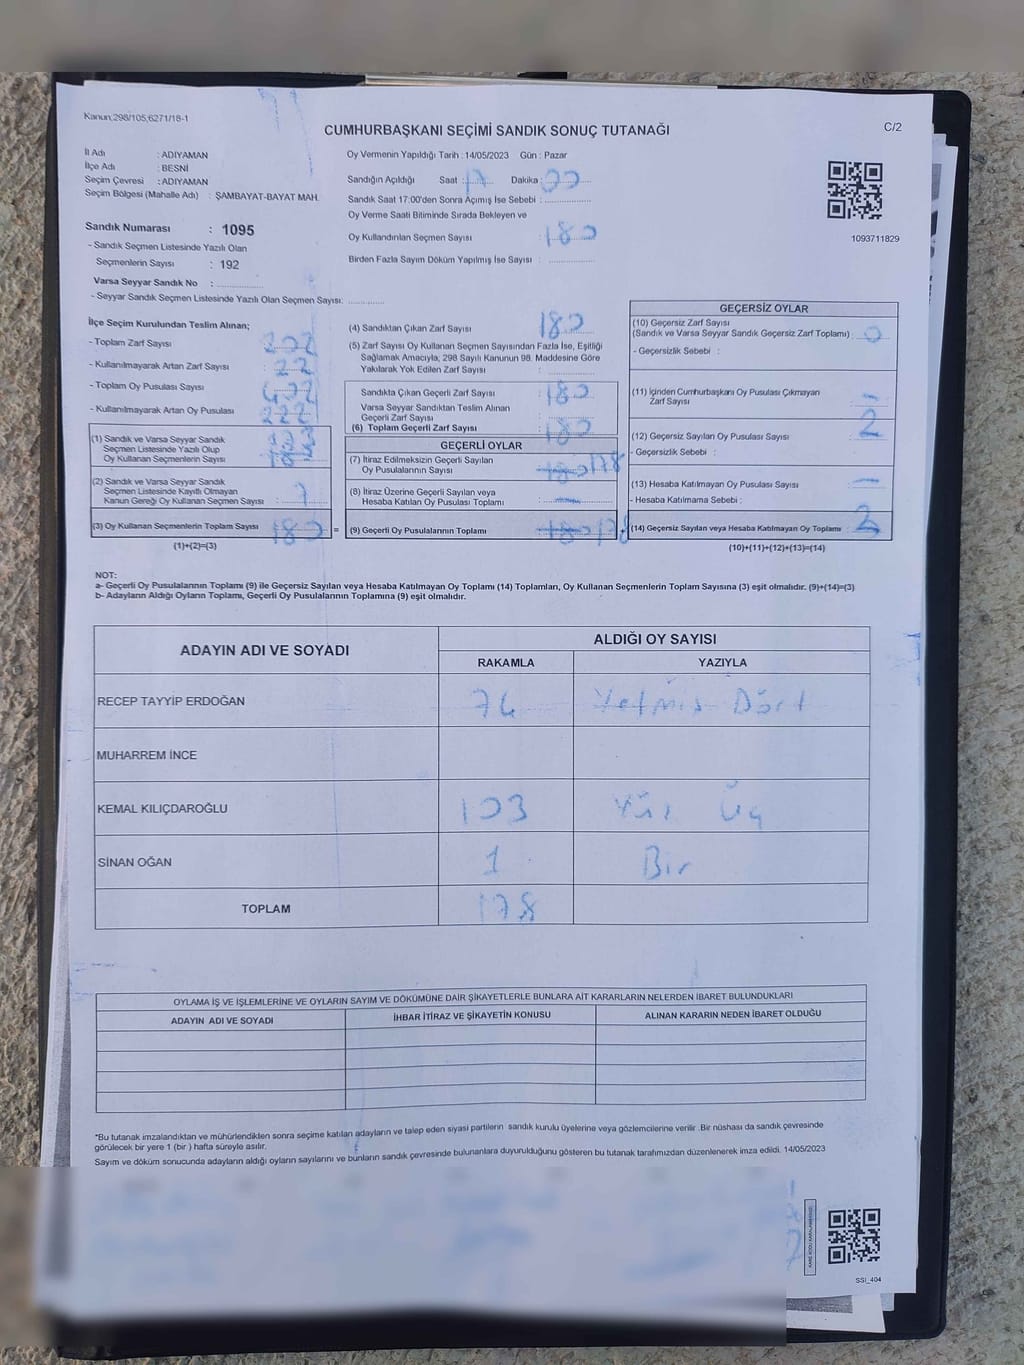 Kanun;298/105;6271/18-1
CUMHURBAŞKANI SEÇİMİ SANDIK SONUÇ TUTANAĞI
C/2
İl Adı : ADIYAMAN
İlçe Adı : BESNİ
Seçim Çevresi : ADIYAMAN
Seçim Bölgesi (Mahalle Adı) : ŞAMBAYAT-BAYAT MAH.
Sandık Numarası : 1095
- Sandık Seçmen Listesinde Yazılı Olan
Seçmenlerin Sayısı : 192
Varsa Seyyar Sandık No :
- Seyyar Sandık Seçmen Listesinde Yazılı Olan Seçmen Sayısı:
Oy Vermenin Yapıldığı Tarih : 14/05/2023 Gün : Pazar
Sandığın Açıldığı Saat : 17 Dakika : 00
Sandık Saat 17:00'den Sonra Açımış İse Sebebi :
Oy Verme Saati Bitiminde Sırada Bekleyen ve
Oy Kullandırılan Seçmen Sayısı : 180
Birden Fazla Sayım Döküm Yapılmış İse Sayısı :
1093711829
İlçe Seçim Kurulundan Teslim Alınan;
- Toplam Zarf Sayısı
- Kullanılmayarak Artan Zarf Sayısı
- Toplam Oy Pusulası Sayısı
- Kullanılmayarak Artan Oy Pusulası
(1) Sandık ve Varsa Seyyar Sandık
Seçmen Listesinde Yazılı Olup
Oy Kullanan Seçmenlerin Sayısı
(2) Sandık ve Varsa Seyyar Sandık
Seçmen Listesinde Kayıtlı Olmayan
Kanun Gereği Oy Kullanan Seçmen Sayısı : 7
(3) Oy Kullanan Seçmenlerin Toplam Sayısı 180 =
(1)+(2)=(3)
(4) Sandıktan Çıkan Zarf Sayısı 180
(5) Zarf Sayısı Oy Kullanan Seçmen Sayısından Fazla İse, Eşitliği
Sağlamak Amacıyla, 298 Sayılı Kanunun 98. Maddesine Göre
Yakılarak Yok Edilen Zarf Sayısı :
Sandıkta Çıkan Geçerli Zarf Sayısı : 180
Varsa Seyyar Sandıktan Teslim Alınan
Geçerli Zarf Sayısı :
(6) Toplam Geçerli Zarf Sayısı 180
GEÇERLİ OYLAR
(7) İtiraz Edilmeksizin Geçerli Sayılan
Oy Pusulalarının Sayısı 180 178
(8) İtiraz Üzerine Geçerli Sayılan veya
Hesaba Katılan Oy Pusulaları Toplamı : —
(9) Geçerli Oy Pusulalarının Toplamı 180 178
GEÇERSİZ OYLAR
(10) Geçersiz Zarf Sayısı
(Sandık ve Varsa Seyyar Sandık Geçersiz Zarf Toplamı) 0
- Geçersizlik Sebebi :
(11) İçinden Cumhurbaşkanı Oy Pusulası Çıkmayan
Zarf Sayısı : —
(12) Geçersiz Sayılan Oy Pusulası Sayısı : 2
- Geçersizlik Sebebi :
(13) Hesaba Katılmayan Oy Pusulası Sayısı : —
- Hesaba Katılmama Sebebi :
(14) Geçersiz Sayılan veya Hesaba Katılmayan Oy Toplamı : 2
(10)+(11)+(12)+(13)=(14)
NOT:
a- Geçerli Oy Pusulalarının Toplamı (9) ile Geçersiz Sayılan veya Hesaba Katılmayan Oy Toplamı (14) Toplamları, Oy Kullanan Seçmenlerin Toplam Sayısına (3) eşit olmalıdır. (9)+(14)=(3)
b- Adayların Aldığı Oyların Toplamı, Geçerli Oy Pusulalarının Toplamına (9) eşit olmalıdır.
ADAYIN ADI VE SOYADI ALDIĞI OY SAYISI
RAKAMLA YAZIYLA
RECEP TAYYİP ERDOĞAN 74 Yetmiş Dört
MUHARREM İNCE
KEMAL KILIÇDAROĞLU 103 Yüz Üç
SİNAN OĞAN 1 Bir
TOPLAM 178
OYLAMA İŞ VE İŞLEMLERİNE VE OYLARIN SAYIM VE DÖKÜMÜNE DAİR ŞİKAYETLERLE BUNLARA AİT KARARLARIN NELERDEN İBARET BULUNDUKLARI
ADAYIN ADI VE SOYADI İHBAR İTİRAZ VE ŞİKAYETİN KONUSU ALINAN KARARIN NEDEN İBARET OLDUĞU
*Bu tutanak imzalandıktan ve mühürlendikten sonra seçime katılan adayların ve talep eden siyasi partilerin sandık kurulu üyelerine veya gözlemcilerine verilir .Bir nüshası da sandık çevresinde
görülecek bir yere 1 (bir ) hafta süreyle asılır.
Sayım ve döküm sonucunda adayların aldığı oyların sayılarını ve bunların sandık çevresinde bulunanlara duyurulduğunu gösteren bu tutanak tarafımızdan düzenlenerek imza edildi. 14/05/2023
SSI_404